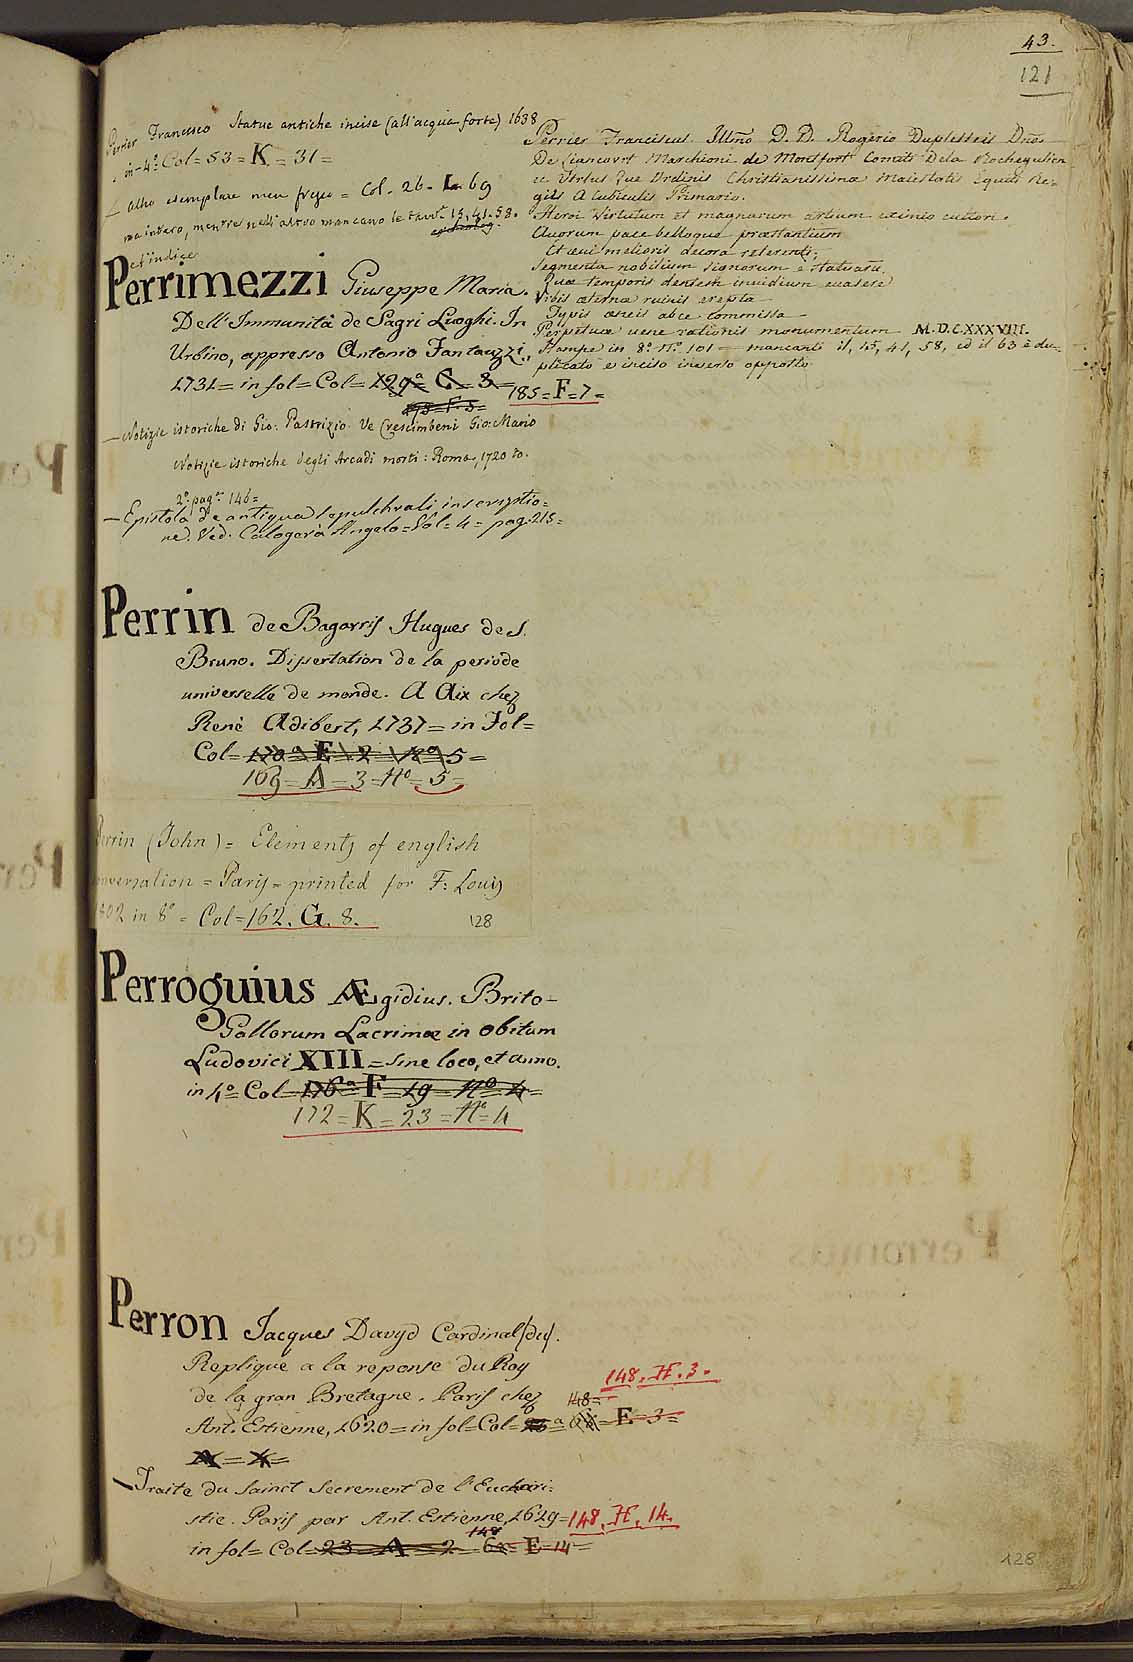 43.
121
Perrier Francesco Statue antiche incise (all'acqua forte) 1638
in-4º Col=53=K=31=
altro esemplare men fregio = Col. 26. L. 69
ma intero, mentre nell'altro mancano le tavv. 15, 41. 58.
et indice
Perrier Franciscus. Illmo D. D. Rogerio Duplesseis Dno.
De Liancovrt Marchioni de Montfort Comiti Dela Rochegulien
ec Vtrius Que Ordinis Christianissimæ Maiestatis Equiti Re-
giis A Cubiculis Primario.
Heroi Virtutum et magnarum artium eximio cultori.
Quorum pace belloque præstantium
Et ævi melioris decora referenti;
Segmenta nobilium signorum e statuaru.
Quæ temporis dentem invidium evasere
Vrbis æternæ ruinis erepta
Typis æneis ab se commissa
Perpetuæ uene rationis monumentum M.D.C.XXXVIII.
Stampe in 8º. Nº. 101 = mancanti il, 15, 41, 58, ed il 63 è du-
plicato e inciso inverso opposto
Perrimezzi Giuseppe Maria.
Dell'Immunità de Sagri Luoghi. In
Urbino, appresso Antonio Fantauzzi,
1731= in fol=Col= 129ª C. 3=
185=F=7=
198=F.5=
— Notizie istoriche di Gio: Pastrizio. Ve Crescimbeni Gio: Mario
Notizie istoriche degli Arcadi morti: Roma, 1720 to.
2º pagª 146=
— Epistola de antiqua sepulchrali inscriptio=
ne. Ved. Calogerà Angelo=Vol=4= pag:215=
Perrin de Bagarris Hugues de S.
Bruno. Dissertation de la periode
universelle de monde. A Aix chez
René Adibert, 1737= in Fol=
Col= 170ª E 2 Nº 5=
169=A=3=Nº=5=
Perrin (John)= Elements of english
conversation = Paris= printed for F: Louis
1802 in 8º = Col=162. G. 8.
128
Perroguius Ægidius. Brito-
Gallorum Lacrimæ in obitum
Ludovici XIII= sine loco, et anno.
in 4º= Col= 176ª F=19=Nº 4=
172=K=23=Nº=4
Perron Jacques Davyd Cardinal (du).
Replique a la reponse du Roy
148. H. 3.
de la gran Bretagne. Paris chez
148=
Ant. Estienne, 1620= in fol=Col= E 3=
A = X=
— Traite du Sainct Secrement de l'Euchari:
stie. Paris par Ant. Estienne, 1629= 148. H. 14.
148
in fol= Col= 23 = A = 2 = E=14=
128